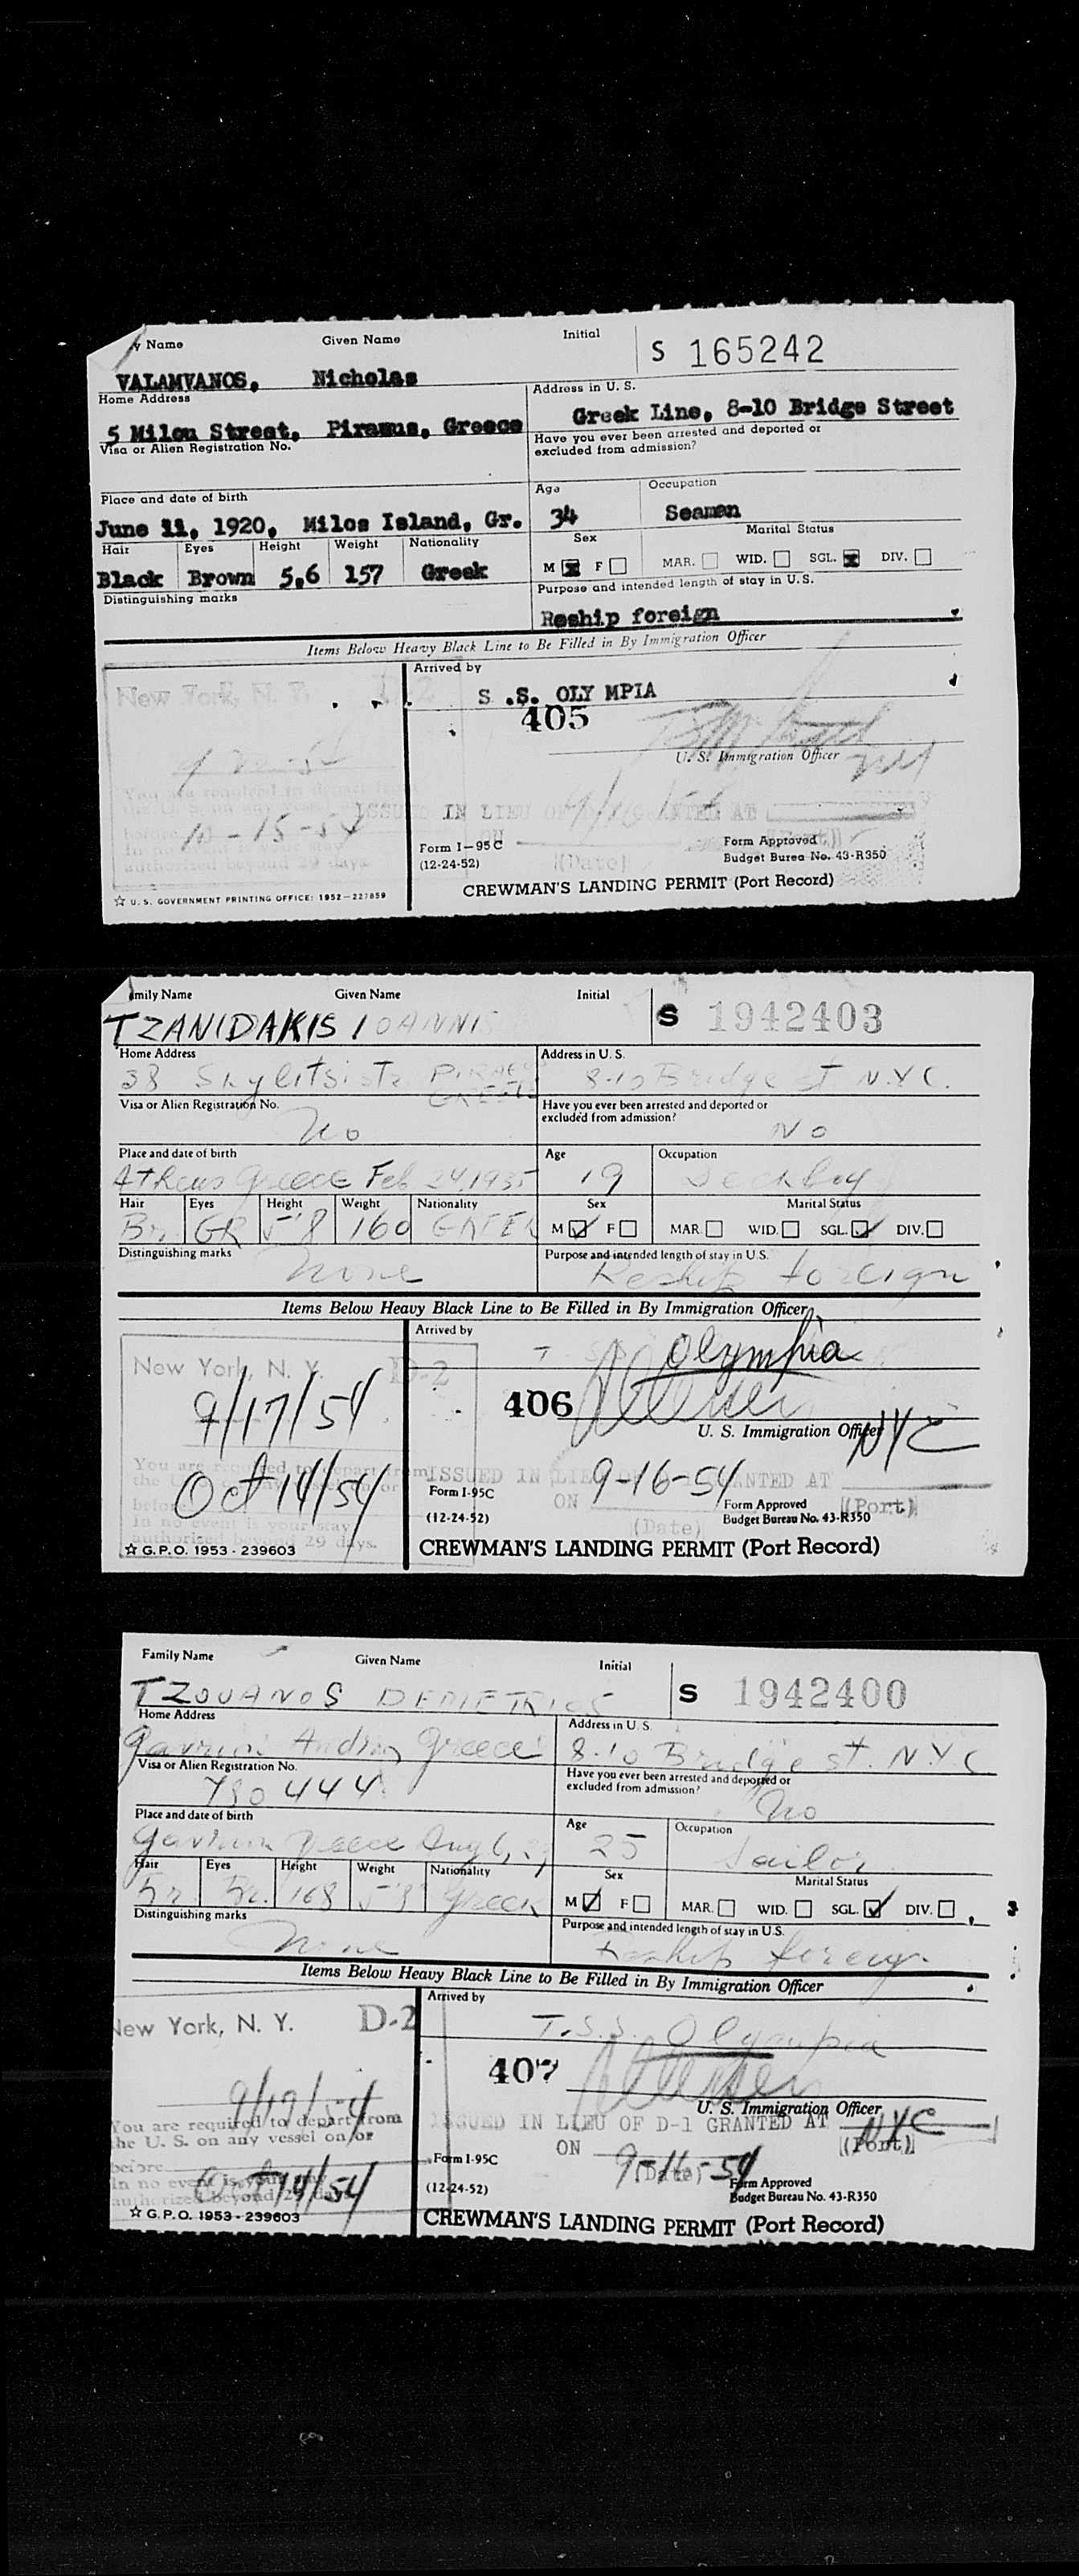 y Name Given Name Initial S 165242
VALAMVANOS, Nicholas
Home Address Address in U. S.
5 Milou Street, Piraeus, Greece Greek Line, 8-10 Bridge Street
Visa or Alien Registration No. Have you ever been arrested and deported or
excluded from admission?
Place and date of birth Age Occupation
June 11, 1920, Milos Island, Gr. 34 Seaman
Hair Eyes Height Weight Nationality Sex Marital Status
Black Brown 5,6 157 Greek M F MAR. WID. SGL. DIV.
Distinguishing marks Purpose and intended length of stay in U.S.
Reship foreign
Items Below Heavy Black Line to Be Filled in By Immigration Officer
Arrived by
New York, N. Y.
S .S. OLY MPIA
405
U. S. Immigration Officer
You are required to depart from
the U. S. on any vessel on or
ISSUED IN LIEU OF GRANTED AT
before 10-15-54
ON (Date) (Port)
In no event is your stay
authorized beyond 29 days.
Form I-95C Form Approved
(12-24-52) Budget Burea No. 43-R350
☆ U. S. GOVERNMENT PRINTING OFFICE: 1952-227859
CREWMAN'S LANDING PERMIT (Port Record)
mily Name Given Name Initial S 1942403
TZANIDAKIS IOANNIS
Home Address Address in U. S.
38 Skylitsi Str PIRAEUS 8-10 Bridge st N.Y.C.
GREECE
Visa or Alien Registration No. Have you ever been arrested and deported or
excluded from admission?
No No
Place and date of birth Age Occupation
Athens Greece Feb 24, 1935 19 Deckboy
Hair Eyes Height Weight Nationality Sex Marital Status
Br. GR 5'8 160 GREEK M F MAR. WID. SGL. DIV.
Distinguishing marks Purpose and intended length of stay in U.S.
None Reship foreign
Items Below Heavy Black Line to Be Filled in By Immigration Officer
Arrived by
New York, N. Y. D-2
Olympia
9/17/54
406
U. S. Immigration Officer
NYC
You are required to depart from
the U. S. on any vessel on or
before Oct 14/54
In no event is your stay
authorized beyond 29 days.
ISSUED IN LIEU GRANTED AT
ON 9-16-54
(Date) (Port)
Form I-95C Form Approved
(12-24-52) Budget Bureau No. 43-R350
☆ G.P.O. 1953-239603
CREWMAN'S LANDING PERMIT (Port Record)
Family Name Given Name Initial S 1942400
TZOUANOS DEMETRIOS
Home Address Address in U. S.
Gavrion Andros Greece 8-10 Bridge st. N.Y.C
Visa or Alien Registration No. Have you ever been arrested and deported or
excluded from admission?
780444 No
Place and date of birth Age Occupation
Gavrion Greece Aug 6, 29 25 Sailor
Hair Eyes Height Weight Nationality Sex Marital Status
Br. Br. 168 5'8" Greek M F MAR. WID. SGL. DIV.
Distinguishing marks Purpose and intended length of stay in U.S.
None Reship foreign
Items Below Heavy Black Line to Be Filled in By Immigration Officer
Arrived by
New York, N. Y. D-2
T.S.S. Olympia
407
9/17/54
U. S. Immigration Officer
You are required to depart from
the U. S. on any vessel on or
before Oct 14/54
In no event is your stay
authorized beyond 29 days
ISSUED IN LIEU OF D-1 GRANTED AT NYC
ON 9-16-54
(Date) (Port)
Form I-95C Form Approved
(12-24-52) Budget Bureau No. 43-R350
☆ G.P.O. 1953-239603
CREWMAN'S LANDING PERMIT (Port Record)